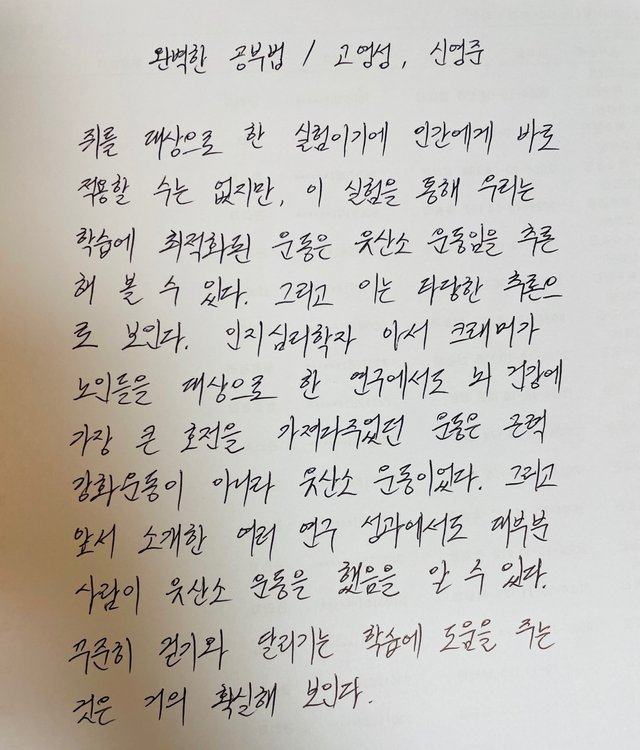 완벽한 공부법 / 고영성, 신영준
쥐를 대상으로 한 실험이기에 인간에게 바로
적용할 수는 없지만, 이 실험을 통해 우리는
학습에 최적화된 운동은 유산소 운동임을 추론
해 볼 수 있다. 그리고 이는 타당한 추론으
로 보인다. 인지심리학자 아서 크래머가
노인들을 대상으로 한 연구에서도 뇌 건강에
가장 큰 호전을 가져다주었던 운동은 근력
강화운동이 아니라 유산소 운동이었다. 그리고
앞서 소개한 여러 연구 성과에서도 대부분
사람이 유산소 운동을 했음을 알 수 있다.
꾸준히 걷기와 달리기는 학습에 도움을 주는
것은 거의 확실해 보인다.